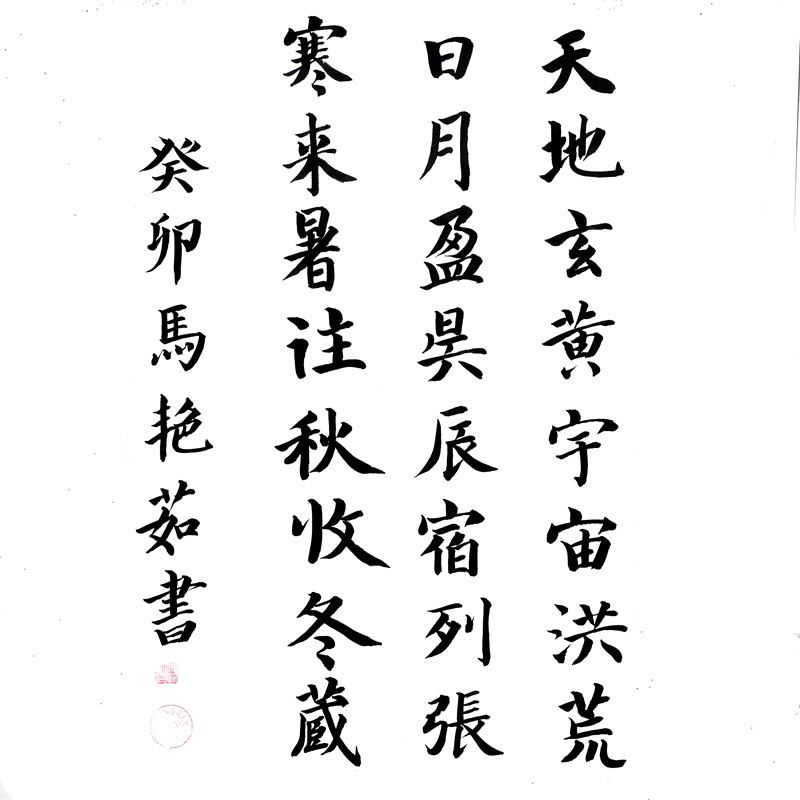 天地玄黄宇宙洪荒
日月盈昃辰宿列張
寒来暑注秋收冬蔵
癸卯馬艳茹書